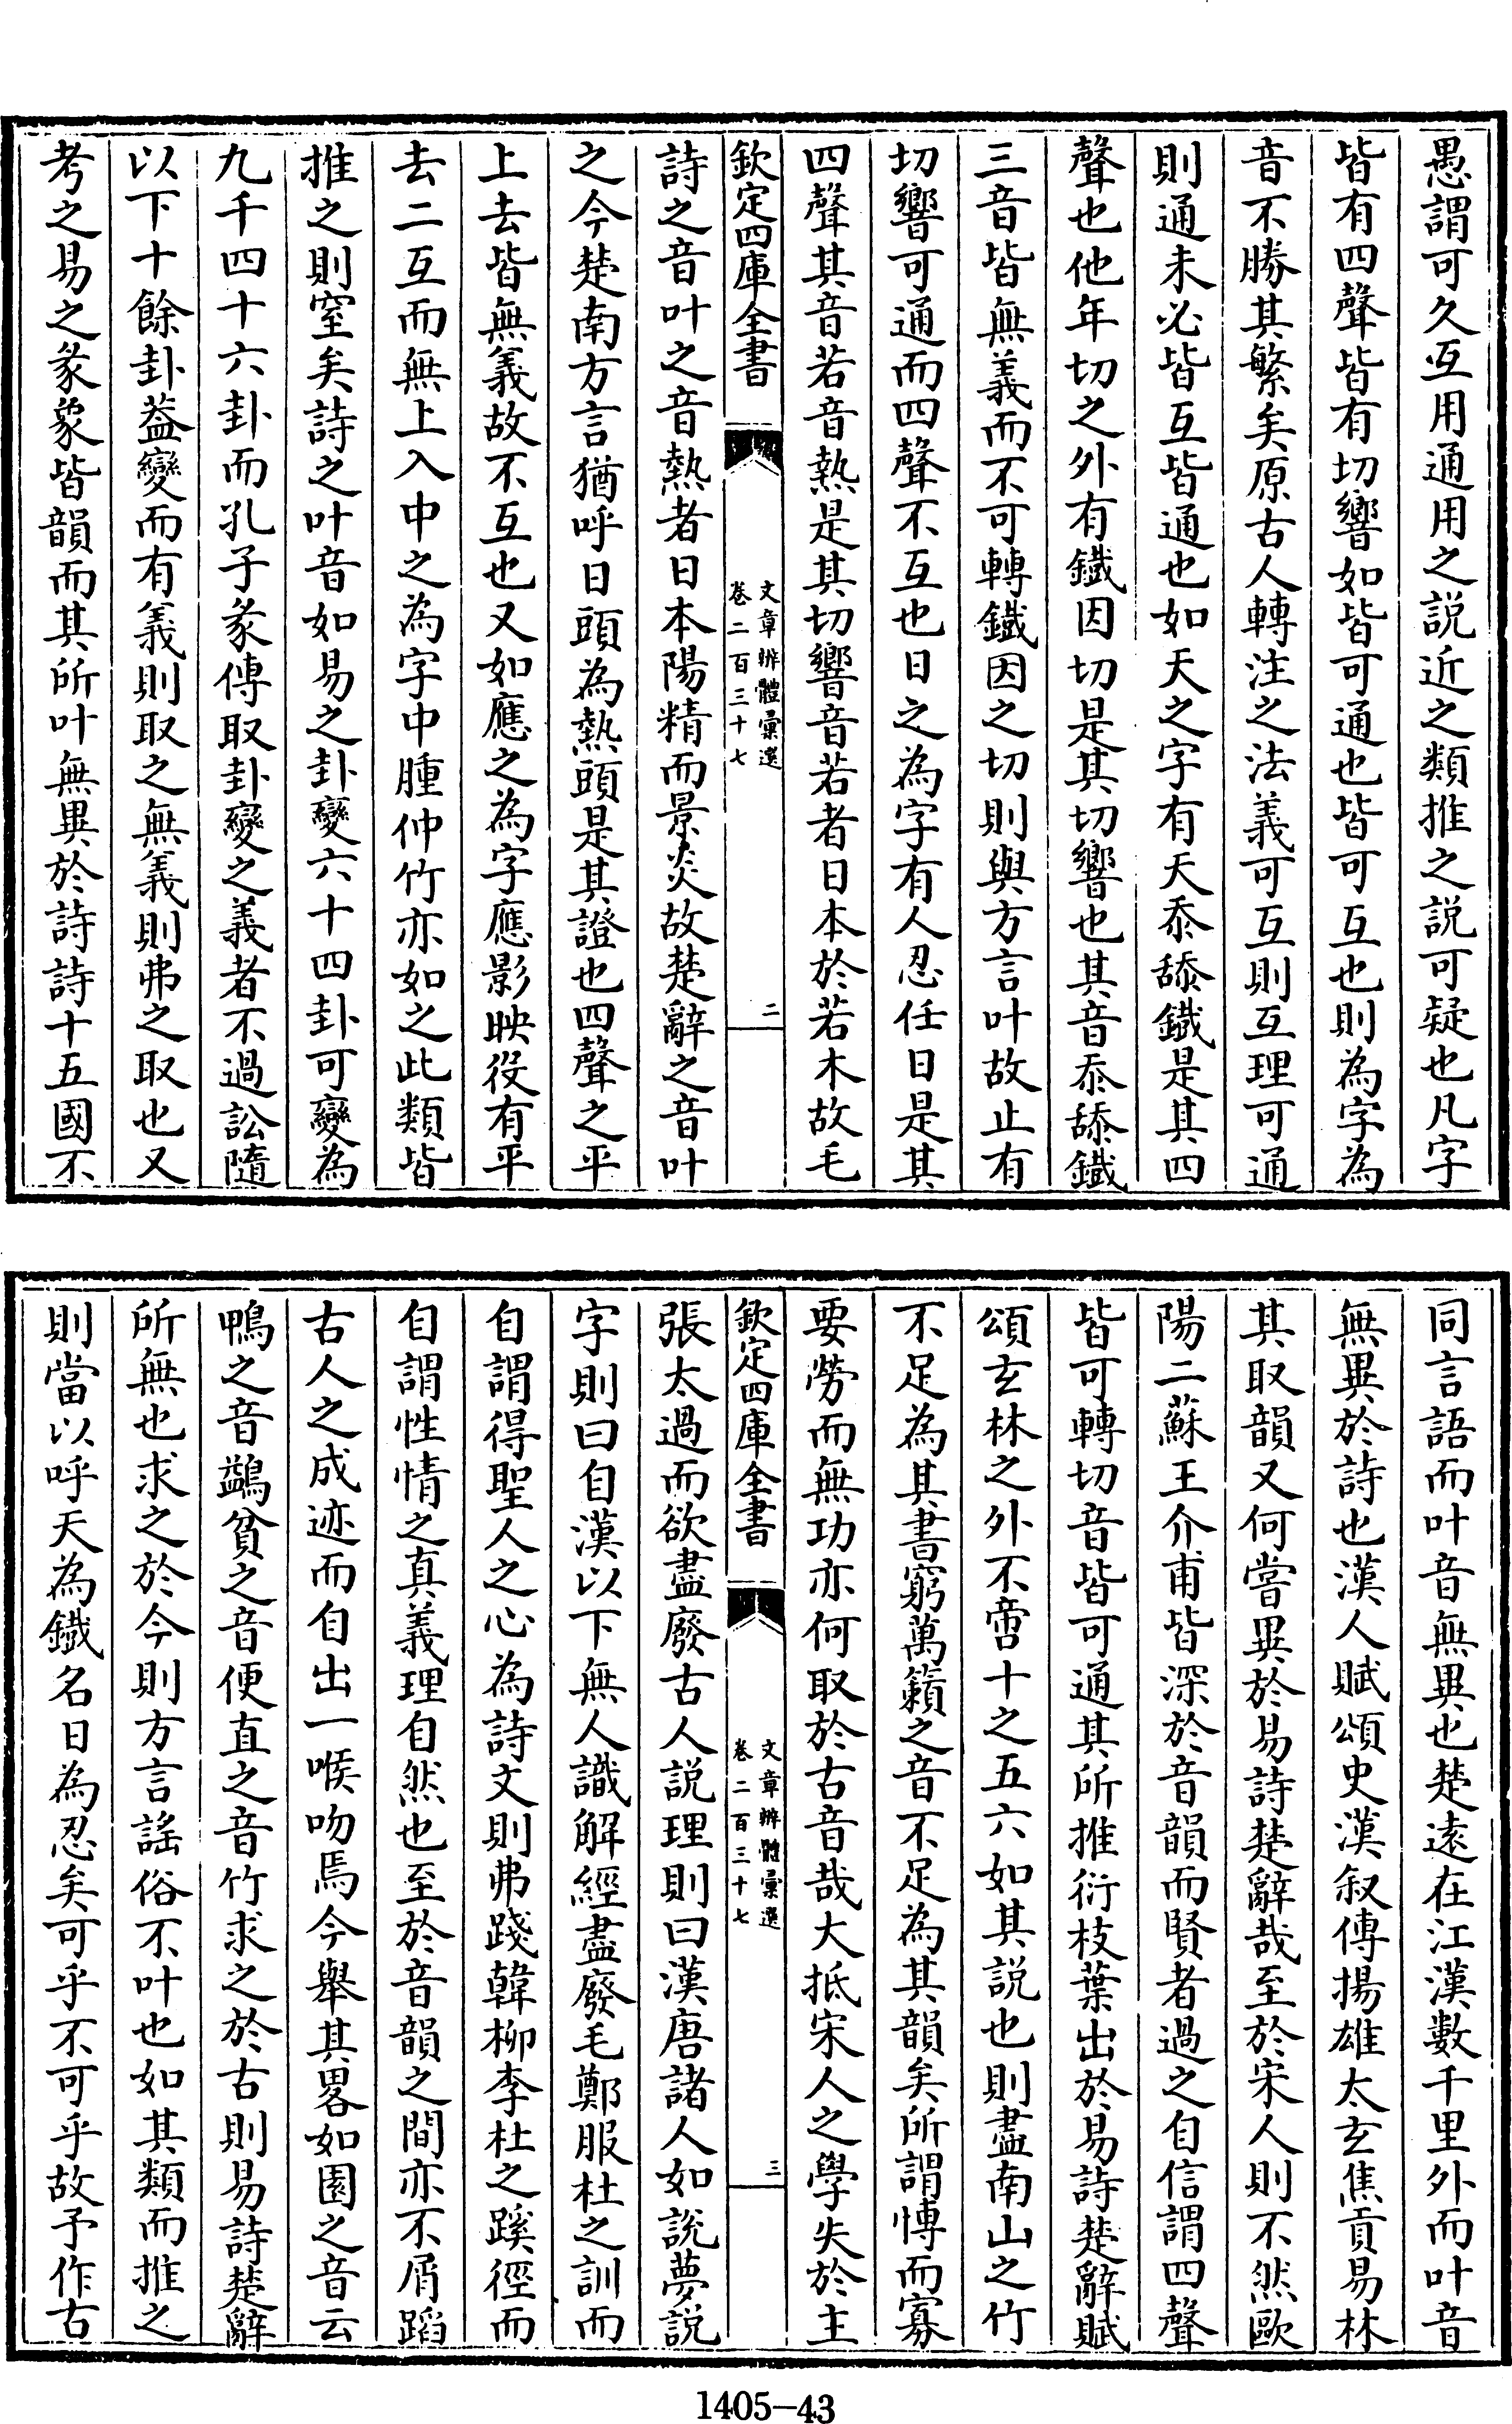 愚謂可久互用通用之說近之類推之說可疑也凡字
皆有四聲皆有切響如皆可通也皆可互也則為字為
音不勝其繁矣原古人轉注之法義可互則互理可通
則通未必皆互皆通也如天之字有天忝舔鐵是其四
聲也他年切之外有鐵因切是其切響也其音忝舔鐵
三音皆無義而不可轉鐵因之切則與方言叶故止有
切響可通而四聲不互也日之為字有人忍任日是其
四聲其音若音熱是其切響音若者日本於若木故毛
欽定四庫全書
文章辨體彙選
卷二百三十七
二
詩之音叶之音熱者日本陽精而景炎故楚辭之音叶
之今楚南方言猶呼日頭為熱頭是其證也四聲之平
上去皆無義故不互也又如應之為字應影映役有平
去二互而無上入中之為字中腫仲竹亦如之此類皆
推之則窒矣詩之叶音如易之卦變六十四卦可變為
九千四十六卦而孔子彖傳取卦變之義者不過訟隨
以下十餘卦葢變而有義則取之無義則弗之取也又
考之易之彖象皆韻而其所叶無異於詩詩十五國不
同言語而叶音無異也楚遠在江漢數千里外而叶音
無異於詩也漢人賦頌史漢叙傳揚雄太玄焦貢易林
其取韻又何嘗異於易詩楚辭哉至於宋人則不然歐
陽二蘇王介甫皆深於音韻而賢者過之自信謂四聲
皆可轉切音皆可通其所推衍枝葉出於易詩楚辭賦
頌玄林之外不啻十之五六如其說也則盡南山之竹
不足為其書窮萬籟之音不足為其韻矣所謂慱而寡
要勞而無功亦何取於古音哉大抵宋人之學失於主
欽定四庫全書
文章辨體彙選
卷二百三十七
三
張太過而欲盡廢古人說理則曰漢唐諸人如說夢說
字則曰自漢以下無人識解經盡廢毛鄭服杜之訓而
自謂得聖人之心為詩文則弗踐韓柳李杜之蹊徑而
自謂性情之真義理自然也至於音韻之間亦不屑蹈
古人之成迹而自出一喉吻焉今舉其畧如園之音云
鴨之音鷁貧之音便直之音竹求之於古則易詩楚辭
所無也求之於今則方言謡俗不叶也如其類而推之
則當以呼天為鐵名日為忍矣可乎不可乎故予作古
1405-43